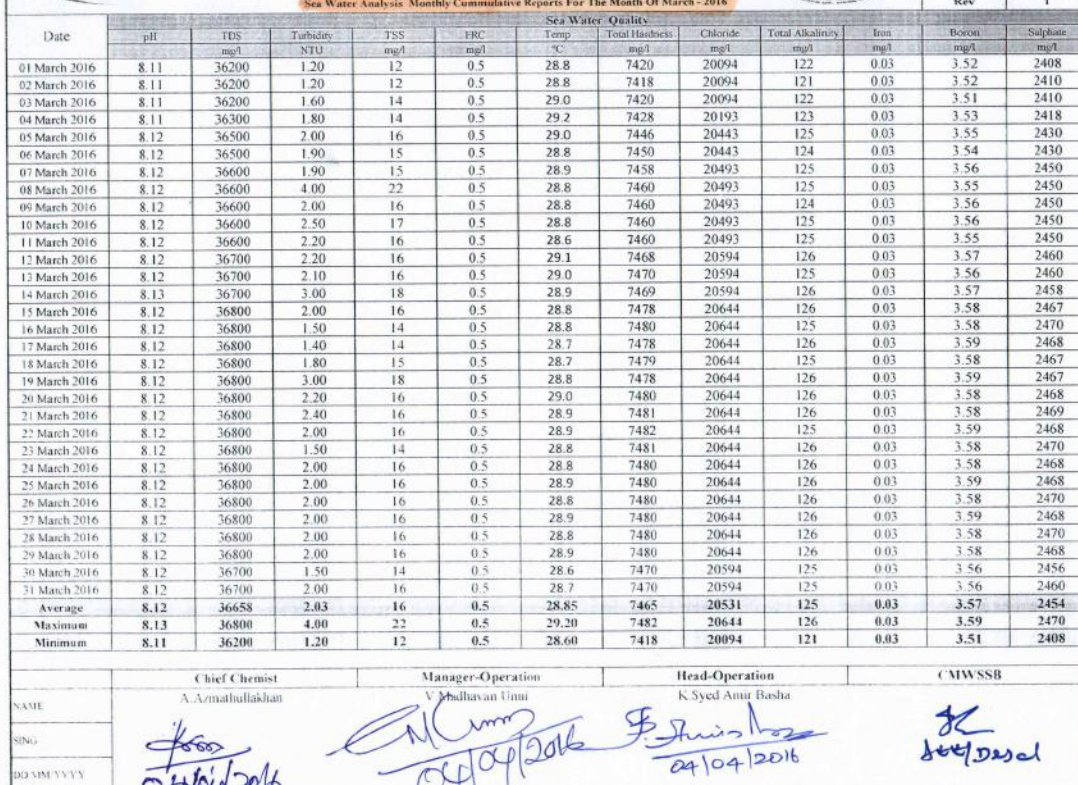 Sea Water Analysis Monthly Cummulative Reports For The Month Of March - 2016 Rev 1
Sea Water Quality
Date pH TDS Turbidity TSS FRC Temp Total Hardness Chloride Total Alkalinity Iron Boron Sulphate
mg/l NTU mg/l mg/l °C mg/l mg/l mg/l mg/l mg/l mg/l
01 March 2016 8.11 36200 1.20 12 0.5 28.8 7420 20094 122 0.03 3.52 2408
02 March 2016 8.11 36200 1.20 12 0.5 28.8 7418 20094 121 0.03 3.52 2410
03 March 2016 8.11 36200 1.60 14 0.5 29.0 7420 20094 122 0.03 3.51 2410
04 March 2016 8.11 36300 1.80 14 0.5 29.2 7428 20193 123 0.03 3.53 2418
05 March 2016 8.12 36500 2.00 16 0.5 29.0 7446 20443 125 0.03 3.55 2430
06 March 2016 8.12 36500 1.90 15 0.5 28.8 7450 20443 124 0.03 3.54 2430
07 March 2016 8.12 36600 1.90 15 0.5 28.9 7458 20493 125 0.03 3.56 2450
08 March 2016 8.12 36600 4.00 22 0.5 28.8 7460 20493 125 0.03 3.55 2450
09 March 2016 8.12 36600 2.00 16 0.5 28.8 7460 20493 124 0.03 3.56 2450
10 March 2016 8.12 36600 2.50 17 0.5 28.8 7460 20493 125 0.03 3.56 2450
11 March 2016 8.12 36600 2.20 16 0.5 28.6 7460 20493 125 0.03 3.55 2450
12 March 2016 8.12 36700 2.20 16 0.5 29.1 7468 20594 126 0.03 3.57 2460
13 March 2016 8.12 36700 2.10 16 0.5 29.0 7470 20594 125 0.03 3.56 2460
14 March 2016 8.13 36700 3.00 18 0.5 28.9 7469 20594 126 0.03 3.57 2458
15 March 2016 8.12 36800 2.00 16 0.5 28.8 7478 20644 126 0.03 3.58 2467
16 March 2016 8.12 36800 1.50 14 0.5 28.8 7480 20644 125 0.03 3.58 2470
17 March 2016 8.12 36800 1.40 14 0.5 28.7 7478 20644 126 0.03 3.59 2468
18 March 2016 8.12 36800 1.80 15 0.5 28.7 7479 20644 125 0.03 3.58 2467
19 March 2016 8.12 36800 3.00 18 0.5 28.8 7478 20644 126 0.03 3.59 2467
20 March 2016 8.12 36800 2.20 16 0.5 29.0 7480 20644 126 0.03 3.58 2468
21 March 2016 8.12 36800 2.40 16 0.5 28.9 7481 20644 126 0.03 3.58 2469
22 March 2016 8.12 36800 2.00 16 0.5 28.9 7482 20644 125 0.03 3.59 2468
23 March 2016 8.12 36800 1.50 14 0.5 28.8 7481 20644 126 0.03 3.58 2470
24 March 2016 8.12 36800 2.00 16 0.5 28.8 7480 20644 126 0.03 3.58 2468
25 March 2016 8.12 36800 2.00 16 0.5 28.9 7480 20644 126 0.03 3.59 2468
26 March 2016 8.12 36800 2.00 16 0.5 28.8 7480 20644 126 0.03 3.58 2470
27 March 2016 8.12 36800 2.00 16 0.5 28.9 7480 20644 126 0.03 3.59 2468
28 March 2016 8.12 36800 2.00 16 0.5 28.8 7480 20644 126 0.03 3.58 2470
29 March 2016 8.12 36800 2.00 16 0.5 28.9 7480 20644 126 0.03 3.58 2468
30 March 2016 8.12 36700 1.50 14 0.5 28.6 7470 20594 125 0.03 3.56 2456
31 March 2016 8.12 36700 2.00 16 0.5 28.7 7470 20594 125 0.03 3.56 2460
Average 8.12 36658 2.03 16 0.5 28.85 7465 20531 125 0.03 3.57 2454
Maximum 8.13 36800 4.00 22 0.5 29.20 7482 20644 126 0.03 3.59 2470
Minimum 8.11 36200 1.20 12 0.5 28.60 7418 20094 121 0.03 3.51 2408
Chief Chemist Manager-Operation Head-Operation CMWSSB
NAME A.Azmathullakhan V Madhavan Unni K.Syed Amir Basha
SING
DD/MM/YYYY 04/04/2016 04/04/2016 04/04/2016